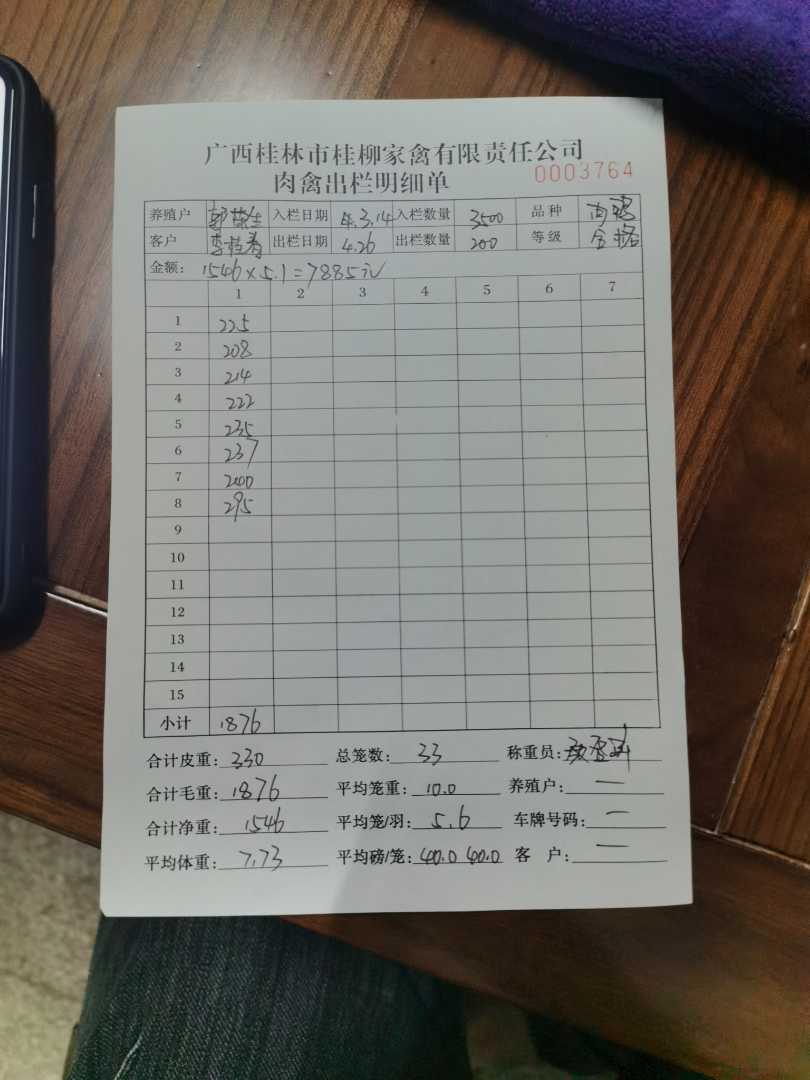 广西桂林市桂柳家禽有限责任公司
肉禽出栏明细单 0003764
养殖户 入栏日期 4.3.14 入栏数量 3500 品种 肉鸡
客户 李桂秀 出栏日期 4.26 出栏数量 200 等级 合格
金额: 1546×5.1=7885元
1 2 3 4 5 6 7
1 225
2 208
3 214
4 222
5 235
6 237
7 240
8 295
9
10
11
12
13
14
15
小计 1876
合计皮重: 330 总笼数: 33 称重员:
合计毛重: 1876 平均笼重: 10.0 养殖户: 一
合计净重: 1546 平均笼/羽: 5.6 车牌号码: 一
平均体重: 7.73 平均磅/笼: 40.0 40.0 客 户: 一